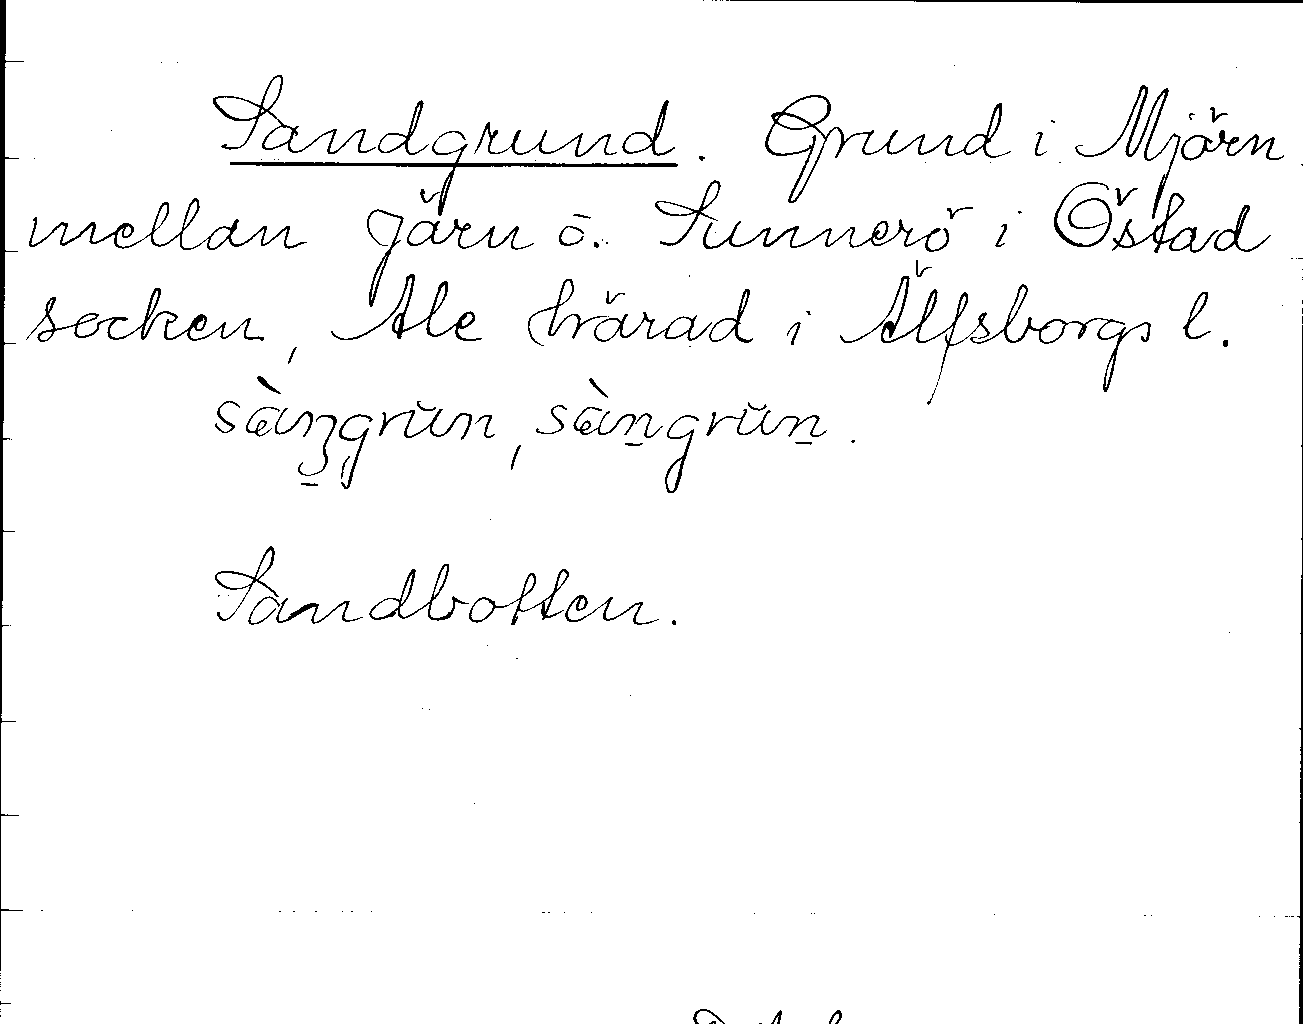 Sandgrund. Grund i Mjörn
mellan Järn ö. Sunnerö i Östad
socken, Ale härad i Älfsborgs l.
Sandbotten.